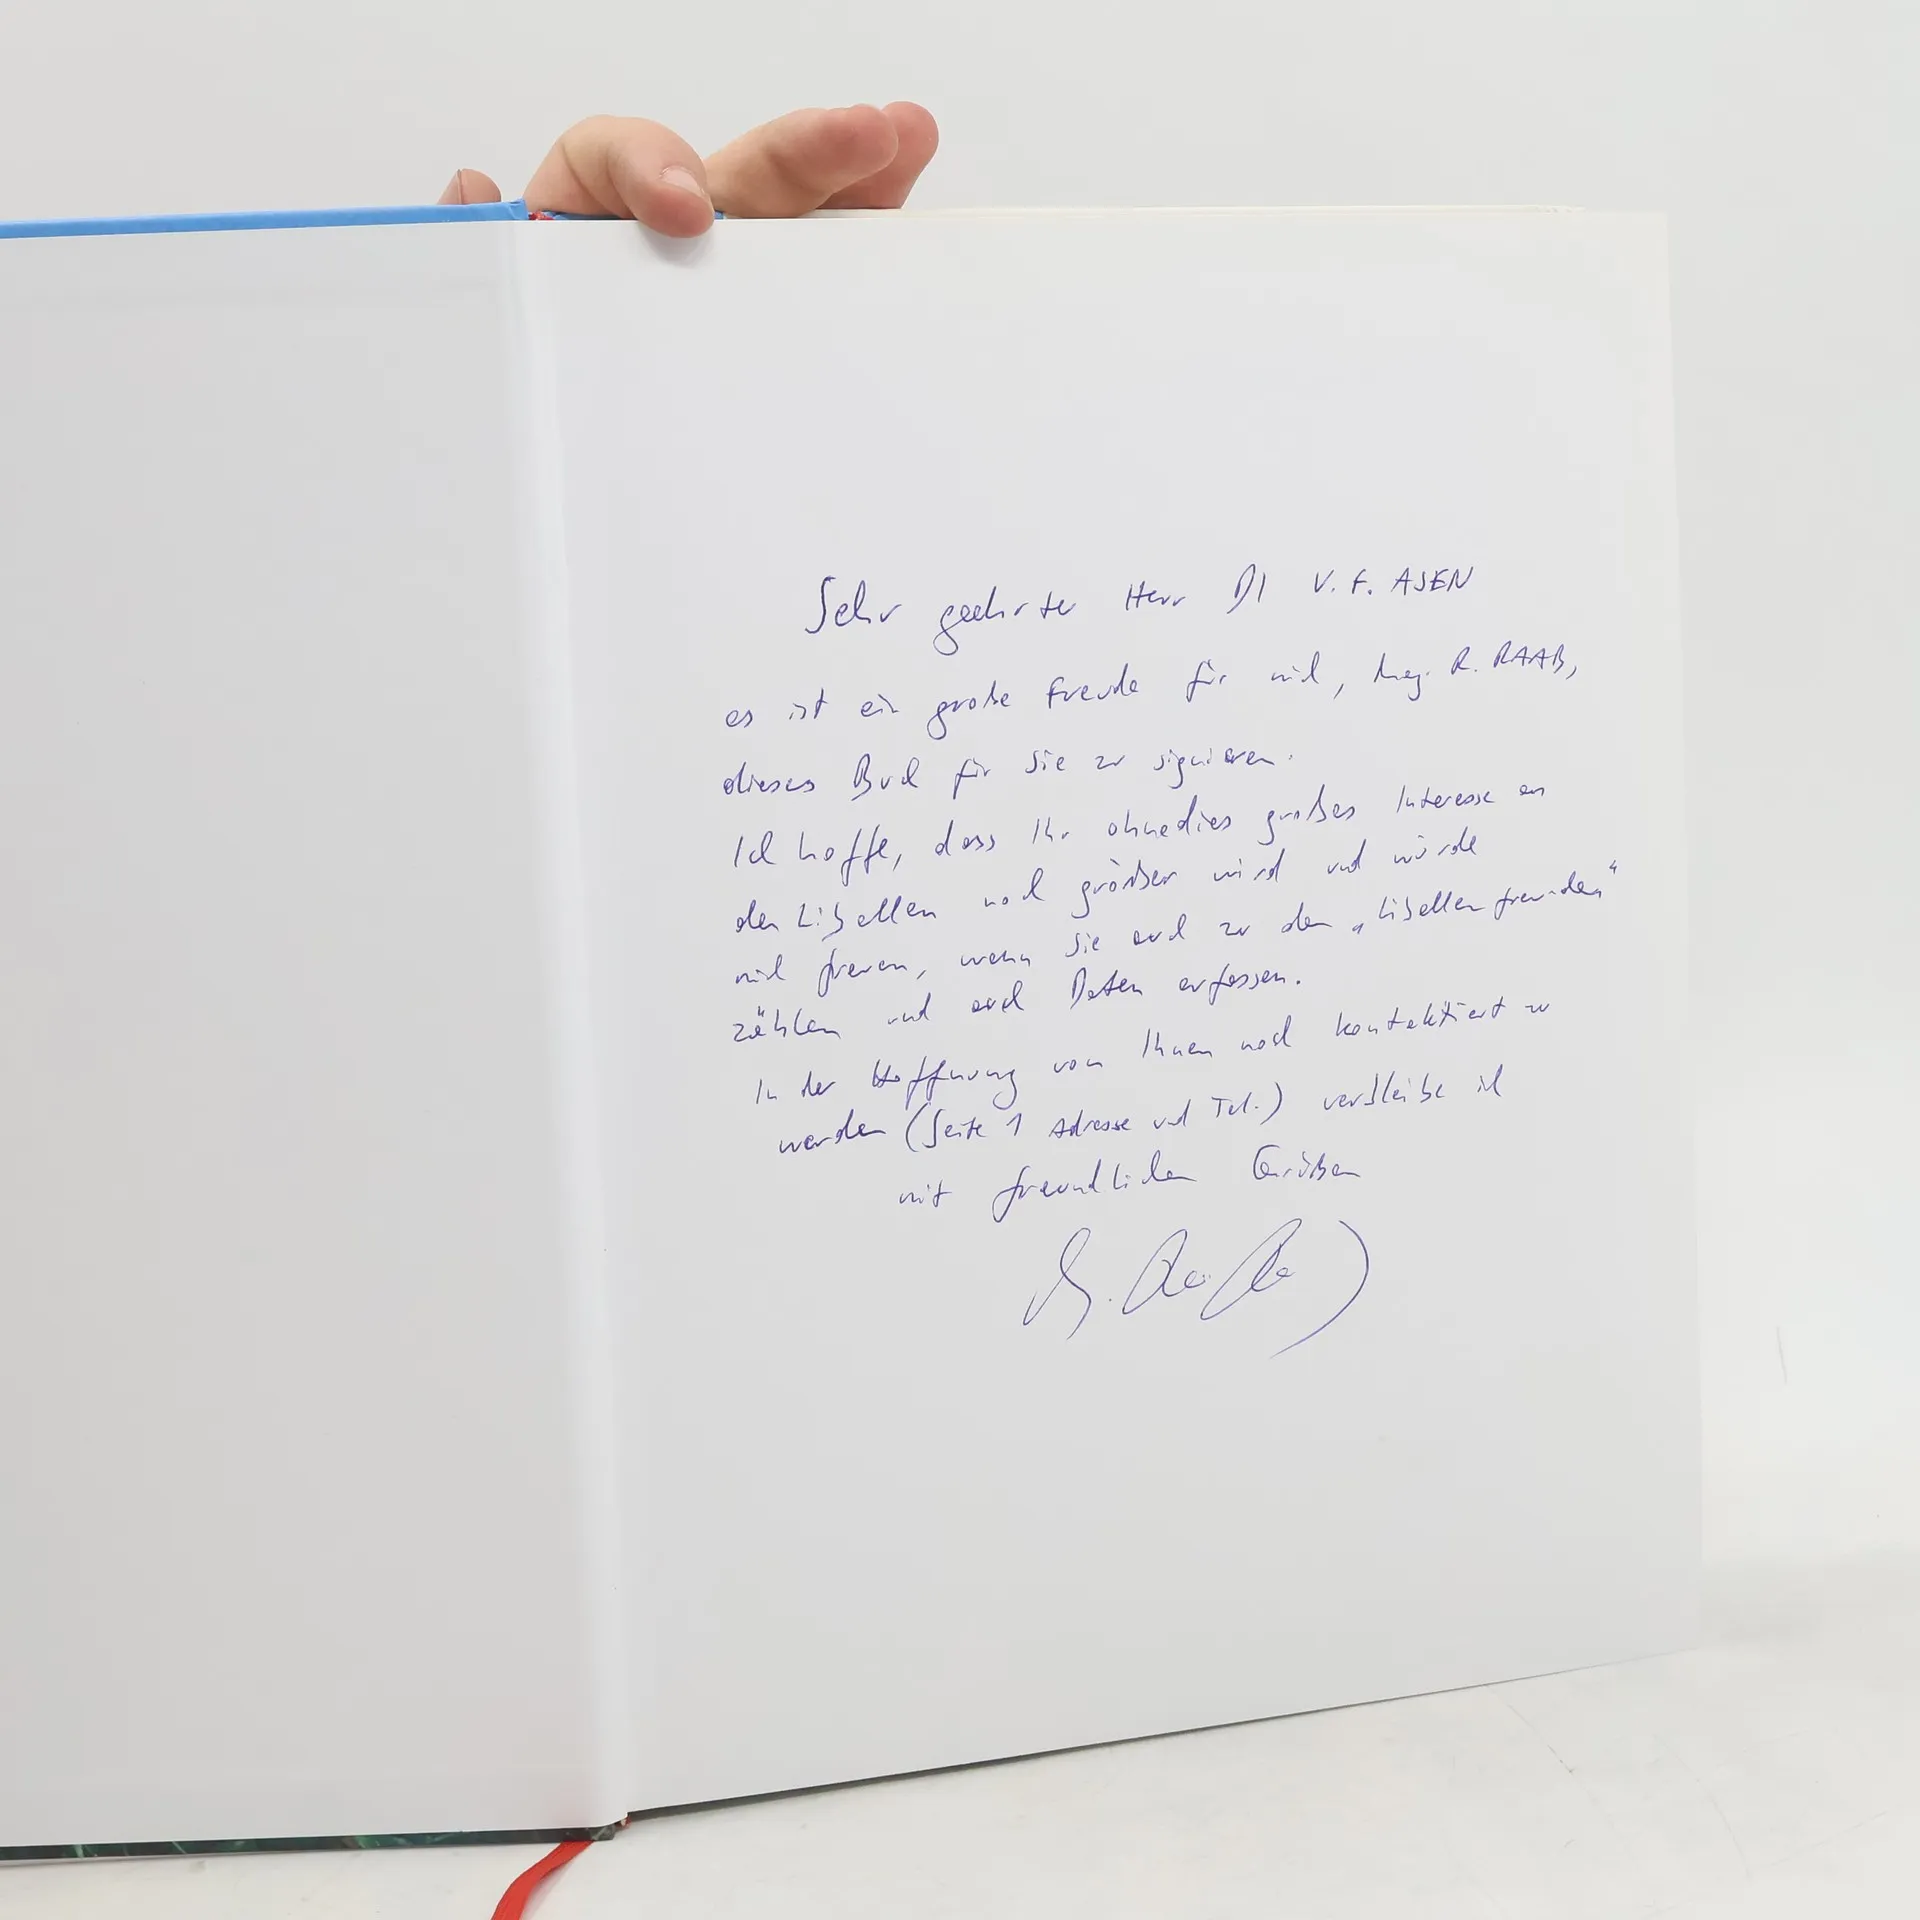 Sehr geehrter Herr DI V. F. ASEN
es ist ein große Freude für mich, Mag. R. RAAB,
dieses Buch für Sie zu signieren.
Ich hoffe, dass Ihr ohnedies großes Interesse an
den Libellen noch größer wird und würde
mich freuen, wenn Sie auch zu den „Libellenfreunden“
zählen und auch Daten erfassen.
In der Hoffnung von Ihnen noch kontaktiert zu
werden (Seite 1 Adresse und Tel.) verbleibe ich
mit freundlichen Grüßen